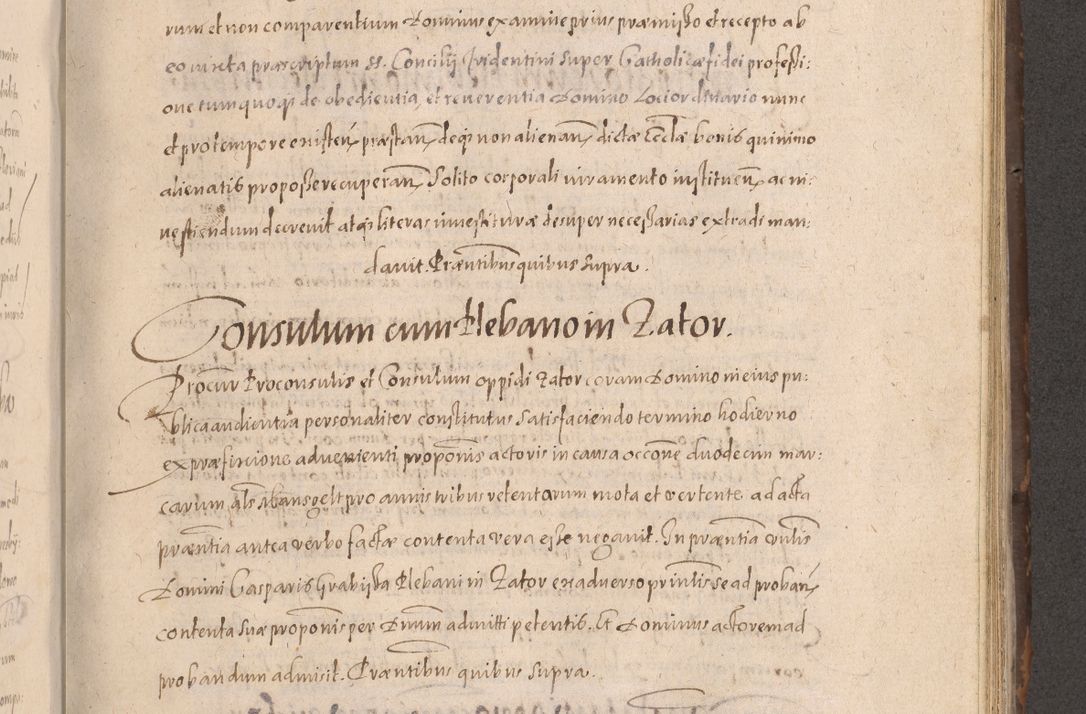 rum et non comparentium Dominus examine prius præmisso et recepto ab
eo iuxta præscriptum SS. Concilij Tridentini super Catholicæ fidei professi:
one tum quoqz de obedientia, et reverentia Domino Loci ordinario nunc
et pro tempore existen præstan deqz non alienan dictæ Eccłæ bonis quinimo
alienatis pro posse recuperan solito corporali iuramento instituen ac in:
vestiendum decrevit atqz literas investituræ desuper necessarias extradi man:
davit. Præntibus quibus supra.
Consulum cum Plebano in Zator.
Procur Proconsulis et Consulum oppidi Zator coram Domino in eius pu:
blica audientia personaliter constitutus satisfaciendo termino hodierno
ex præfixione advenienti proponis actoris in causa occone duodecim mar:
carum als pro annis tribus retentarum mota et vertente ad acta
præntia antea verbo factæ contenta vera esse negavit. In præntia vnlis
Domini Gasparis Grabijska Plebani in Zator ex adverso prinlis se ad proban
contenta suæ proponis per Dnum admitti petentis. Et Dominus actorem ad
probandum admisit. Præntibus quibus supra.